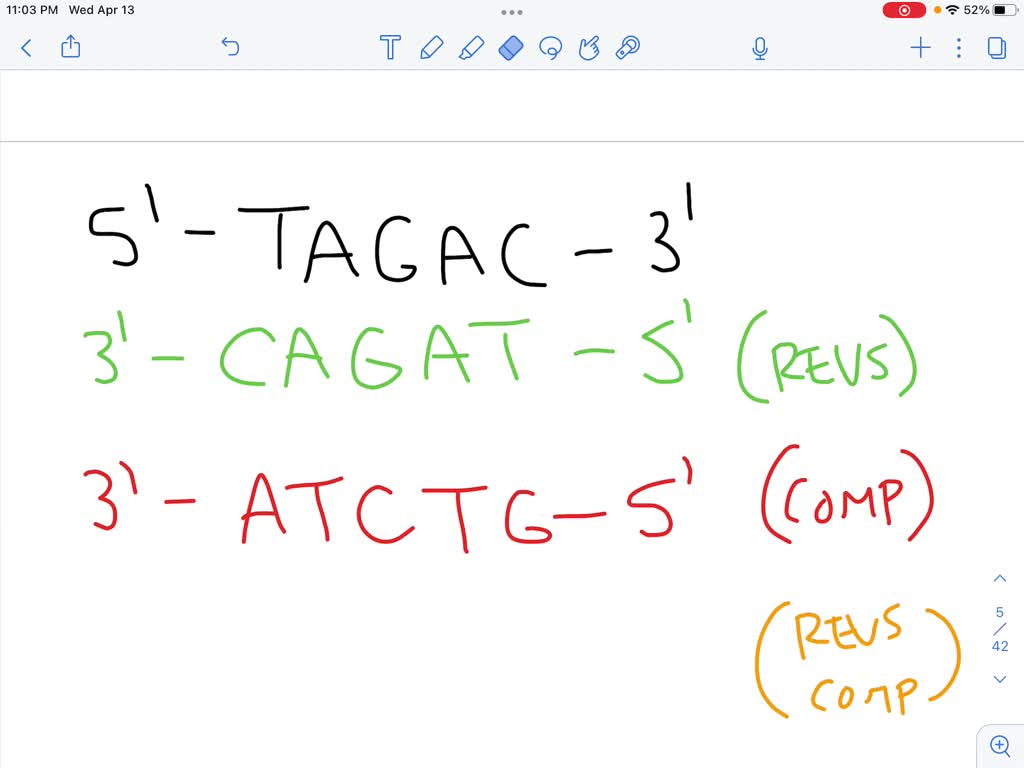 11:03 PM Wed Apr 13
52%
5' - TAGAC - 3'
3' - CAGAT - 5' (REVS)
3' - ATCTG - 5' (COMP)
(REVS
COMP)
5
/
42